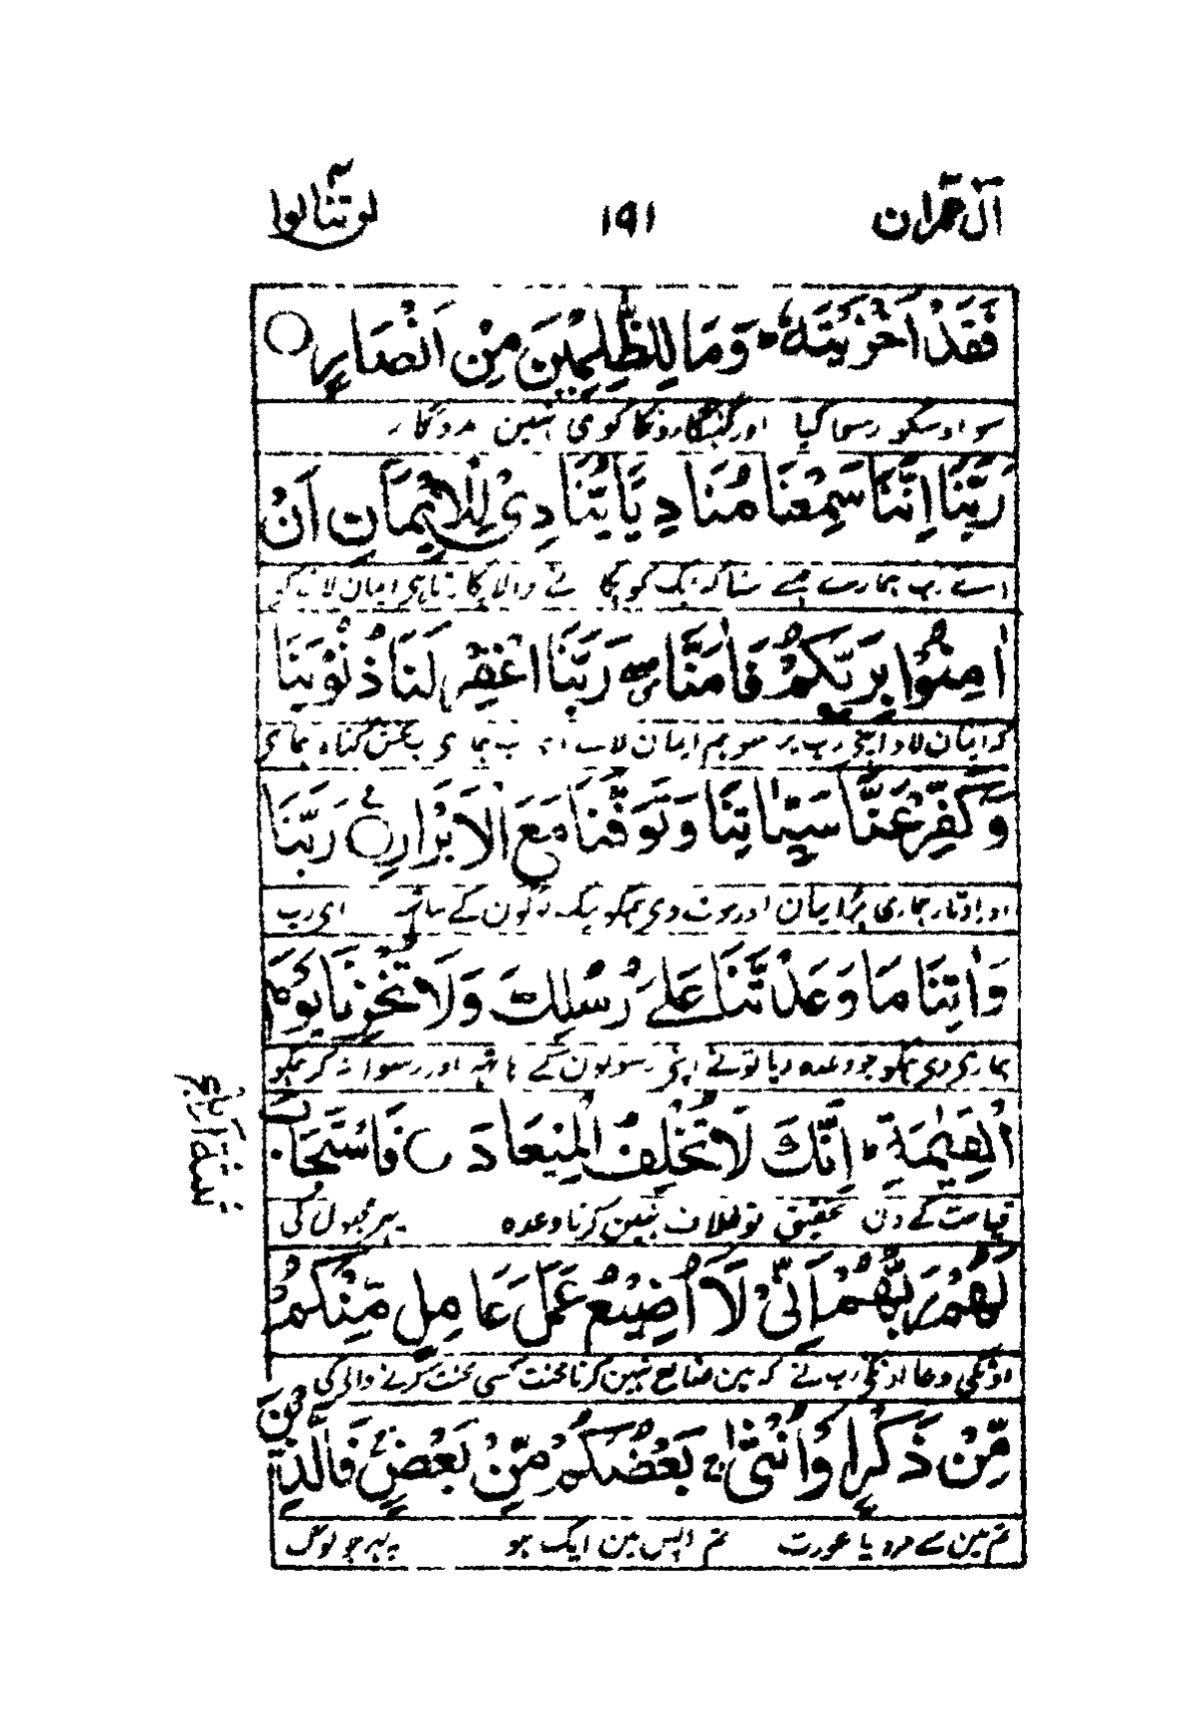 آل عمران ۱۹۱ لن تنالوا
فَقَدْ اَخْزَيْتَهٗ ؕ وَمَا لِلظّٰلِمِيْنَ مِنْ اَنْصَارٍ ○
سو اوسکو رسوا کیا اور گنہگارونکا کوئی نہین مددگار
رَبَّنَا اِنَّنَا سَمِعْنَا مُنَادِيًا يُّنَادِىْ لِلْاِيْمَانِ اَنْ
اے رب ہمارے ہمنے سنا کہ ایک پکارنے والا پکارتا ہی ایمان لانیکو
اٰمِنُوْا بِرَبِّكُمْ فَاٰمَنَّا رَبَّنَا اغْفِرْ لَنَا ذُنُوْبَنَا
کہ ایمان لاؤ اپنی رب پر سو ہم ایمان لائے رب ہماری بخش گناہ ہماری
وَكَفِّرْ عَنَّا سَيِّاٰتِنَا وَتَوَفَّنَا مَعَ الْاَبْرَارِ ○ رَبَّنَا
اور اوتار ہماری برائیان اور موت دی ہمکو نیک لوگون کے ساتھ ای رب
وَاٰتِنَا مَا وَعَدْتَّنَا عَلٰى رُسُلِكَ وَلَا تُخْزِنَا يَوْمَ
ہماری دی ہمکو جو وعدہ دیا تونے اپنی رسولون کے ہاتھ اور رسوا نہ کر ہمکو
الْقِيٰمَةِ ؕ اِنَّكَ لَا تُخْلِفُ الْمِيْعَادَ ○ فَاسْتَجَابَ
قیامت کے دن تحقیق تو خلاف نہین کرتا وعدہ پہر قبول کی
لَهُمْ رَبُّهُمْ اَنِّىْ لَا اُضِيْعُ عَمَلَ عَامِلٍ مِّنْكُمْ
اونکی دعا اونکی رب نے کہ مین ضائع نہین کرتا محنت کسی محنت کرنے والی کی
مِّنْ ذَكَرٍ اَوْ اُنْثٰى ۚ بَعْضُكُمْ مِّنْ بَعْضٍ ۚ فَالَّذِيْنَ
تم مین سے مرد یا عورت تم آپس مین ایک ہو پہر جو لوگ